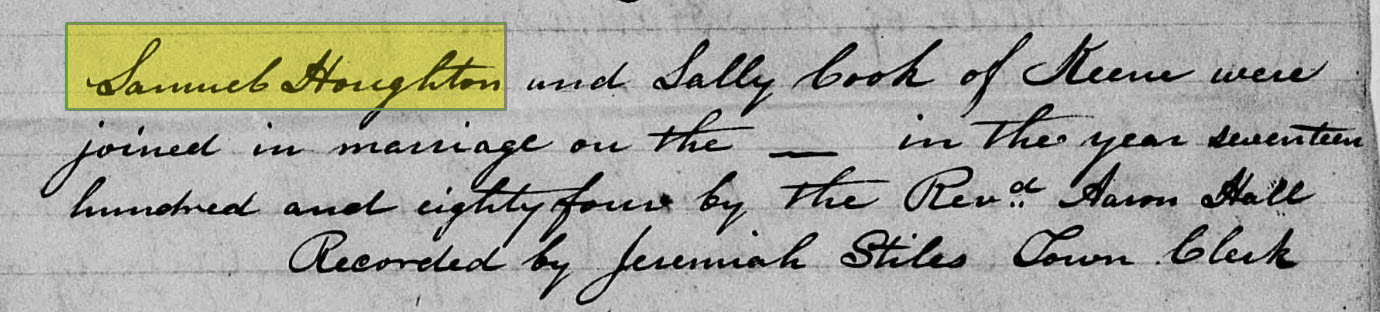 Samuel Houghton and Sally Cook of Keene were
joined in marriage on the — in the year seventeen
hundred and eighty four by the Revd. Aaron Hall
Recorded by Jeremiah Stiles Town Clerk